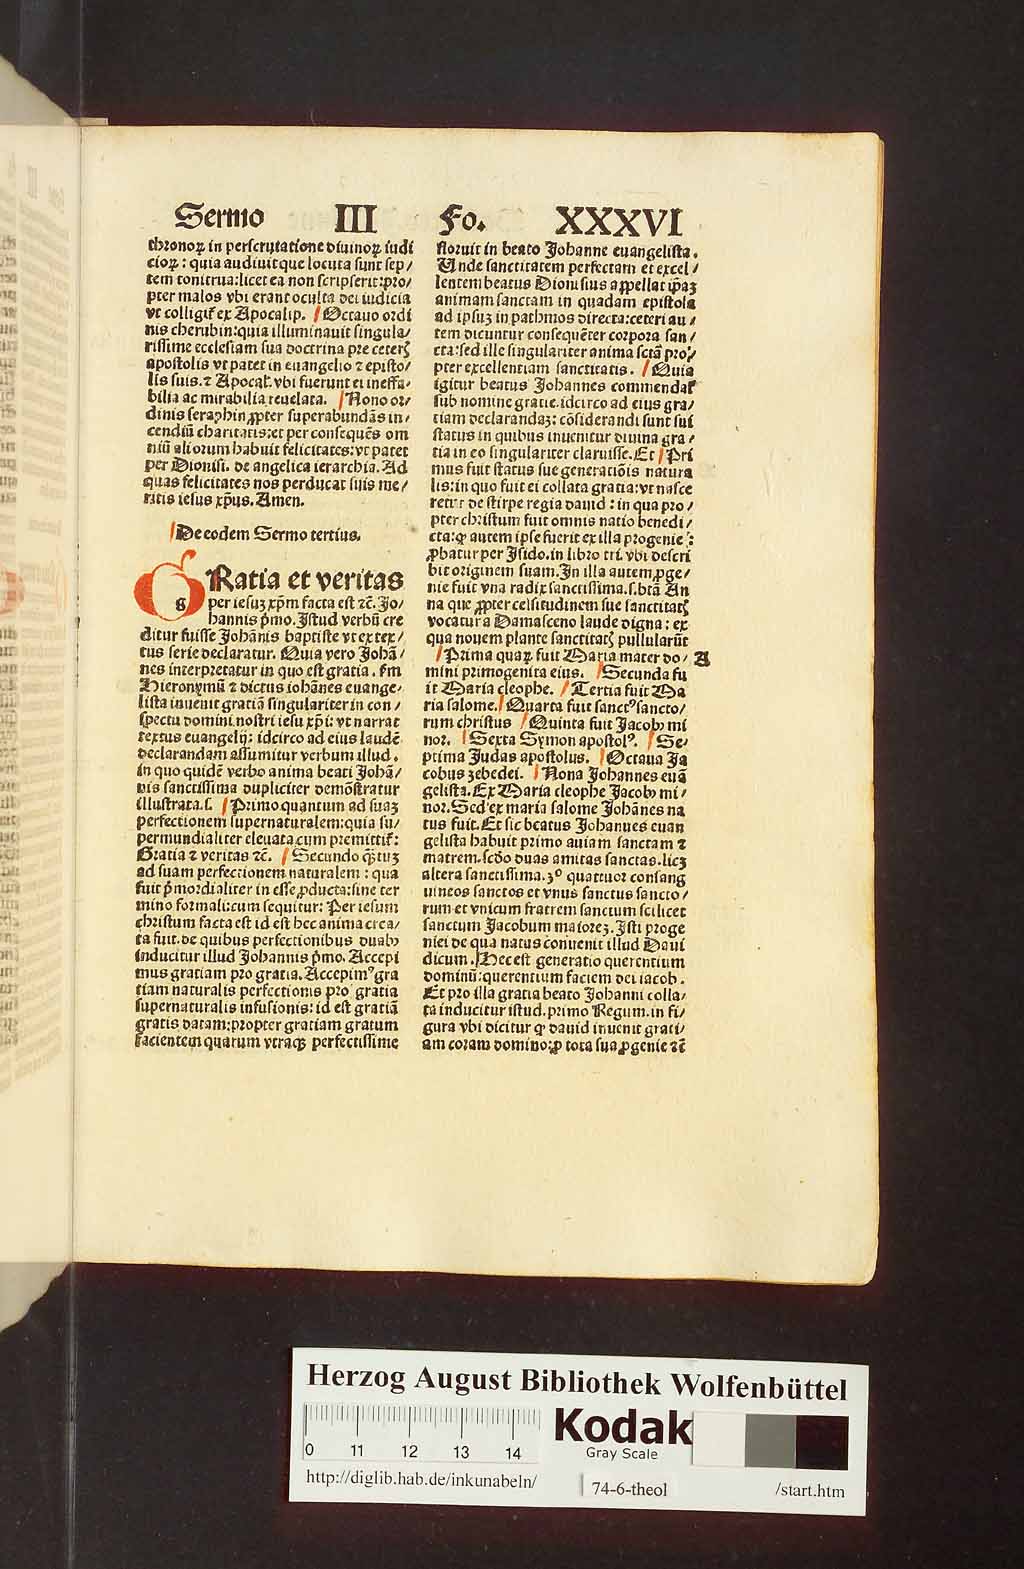 Sermo III Fo. XXXVI
thronoꝝ in perscrutatione diuinoꝝ iudi
cioꝝ : quia audiuit que locuta sunt sep/
tem tonitrua: licet ea non scripserit: pro/
pter malos vbi erant oculta dei iudicia
vt colligit᷑ ex Apocalip. Octauo ordi
nis cherubin: quia illuminauit singula/
rissime ecclesiam sua doctrina pre ceterꝭ
apostolis vt patet in euangelio ⁊ episto/
lis suis. ⁊ Apocal̕. vbi fuerunt ei ineffa/
bilia ac mirabilia reuelata. Nono or/
dinis seraphin ꝓpter superabundās in/
cendiū charitatis: et per consequēs om
niū aliorum habuit felicitates: vt patet
per Dionisi. de angelica ierarchia. Ad
quas felicitates nos perducat suis me/
ritis iesus xp̄us. Amen.
De eodem Sermo tertius.
GRatia et veritas
per iesuꝫ xp̄m facta est ⁊c̄. Jo/
hannis p̄mo. Istud verbū cre
ditur fuisse Johānis baptiste vt ex tex/
tus serie declaratur. Quia vero Johā/
nes interpretatur in quo est gratia. s̄m
Hieronymū ⁊ dictus iohānes euange/
lista inuenit gratiā singulariter in con/
spectu domini nostri iesu xp̄i: vt narrat
textus euangelij: idcirco ad eius laudē
declarandam assumitur verbum illud.
in quo quidē verbo anima beati Johā/
nis sanctissima dupliciter demōstratur
illustrata. s. Primo quantum ad suaꝫ
perfectionem supernaturalem: quia su/
permundialiter eleuata cum premittit᷑:
Gratia ⁊ veritas ⁊c̄. Secundo q̄ꝫtuꝫ
ad suam perfectionem naturalem : qua
fuit p̄mordialiter in esse ꝓducta: sine ter
mino formali: cum sequitur: Per iesum
christum facta est id est hec anima crea/
ta fuit. de quibus perfectionibus duabꝰ
inducitur illud Johannis p̄mo. Accepi
mus gratiam pro gratia. Accepimꝰ gra
tiam naturalis perfectionis pro gratia
supernaturalis infusionis: id est gratiā
gratis datam: propter gratiam gratum
facientem quarum vtraqꝫ perfectissime
floruit in beato Johanne euangelista.
Unde sanctitatem perfectam et excel/
lentem beatus Dionisius appellat ip̄aꝫ
animam sanctam in quadam epistola
ad ipsuꝫ in pathmos directa: ceteri au/
tem dicuntur consequēter corpora san/
cta: sed ille singulariter anima sctā pro/
pter excellentiam sanctitatis. Quia
igitur beatus Johannes commendat᷑
sub nomine gratie. idcirco ad eius gra/
tiam declarandaꝫ: cōsiderandi sunt sui
status in quibus inuenitur diuina gra/
tia in eo singulariter claruisse. Et Pri
mus fuit status sue generatiōis natura
lis: in quo fuit ei collata gratia: vt nasce
retur de stirpe regia dauid : in qua pro/
pter christum fuit omnis natio benedi/
cta: ꝙ autem ipse fuerit ex illa progenie :
ꝓbatur per Isido. in libro tri. vbi descri
bit originem suam. In illa autem ꝓge/
nie fuit vna radix sanctissima. s. btā An
na que ꝓpter celsitudinem sue sanctitatꝭ
vocatur a Damasceno laude digna : ex
qua nouem plante sanctitatꝭ pullularūt
Prima quaꝝ fuit Maria mater do/ A
mini primogenita eius. Secunda fu
it Maria cleophe. Tertia fuit Ma
ria salome. Quarta fuit sanctꝰ sancto/
rum christus Quinta fuit Jacobꝰ mi
nor. Sexta Symon apostolꝰ. Se/
ptima Judas apostolus. Octaua Ja
cobus zebedei. Nona Johannes euā
gelista. Ex Maria cleophe Jacobꝰ mi/
nor. Sed ex maria salome Johānes na
tus fuit. Et sic beatus Johannes euan
gelista habuit primo auiam sanctam ⁊
matrem. scd̄o duas amitas sanctas. licꝫ
altera sanctissima. 3º quattuor consang
uineos sanctos et vnus sanctus sancto/
rum et vnicum fratrem sanctum scilicet
sanctum Jacobum maioreꝫ. Isti proge
niei de qua natus conuenit illud Daui
dicum. Hec est generatio querentium
dominū: querentium faciem dei iacob.
Et pro illa gratia beato Johanni colla/
ta inducitur istud. primo Regum. in fi/
gura vbi dicitur ꝙ dauid inuenit grati/
am coram domino: ꝓ tota sua ꝓgenie ⁊c̄
Herzog August Bibliothek Wolfenbüttel
0 11 12 13 14
Kodak
Gray Scale
http://diglib.hab.de/inkunabeln/ 74-6-theol /start.htm